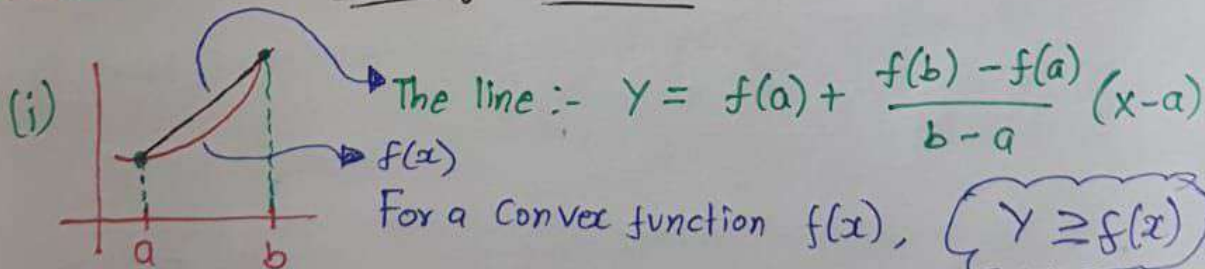 (i) The line :- Y = f(a) + \frac{f(b) - f(a)}{b - a} (x-a)
f(x)
For a Convex function f(x), Y ≥ f(x)
a b